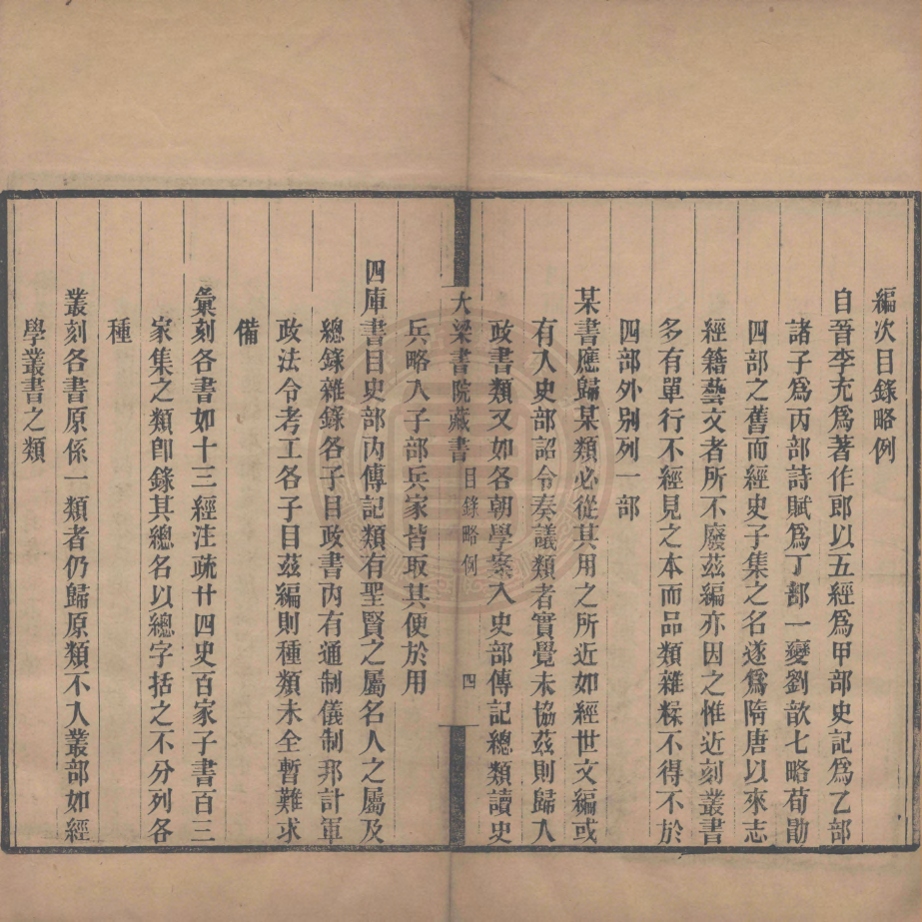 編次目錄略例
自晉李充爲著作郎以五經爲甲部史記爲乙部
諸子爲丙部詩賦爲丁部一變劉歆七略荀勖
四部之舊而經史子集之名遂爲隋唐以來志
經籍藝文者所不廢茲編亦因之惟近刻叢書
多有單行不經見之本而品類雜糅不得不於
四部外別列一部
某書應歸某類必從其用之所近如經世文編或
有入史部詔令奏議類者實覺未協茲則歸入
政書類又如各朝學案入史部傳記總類讀史
大梁書院藏書 目錄略例 四
兵略入子部兵家皆取其便於用
四庫書目史部內傳記類有聖賢之屬名人之屬及
總錄雜錄各子目政書內有通制儀制邦計軍
政法令考工各子目茲編則種類未全暫難求
備
彙刻各書如十三經注疏廿四史百家子書百三
家集之類卽錄其總名以總字括之不分列各
種
叢刻各書原係一類者仍歸原類不入叢部如經
學叢書之類